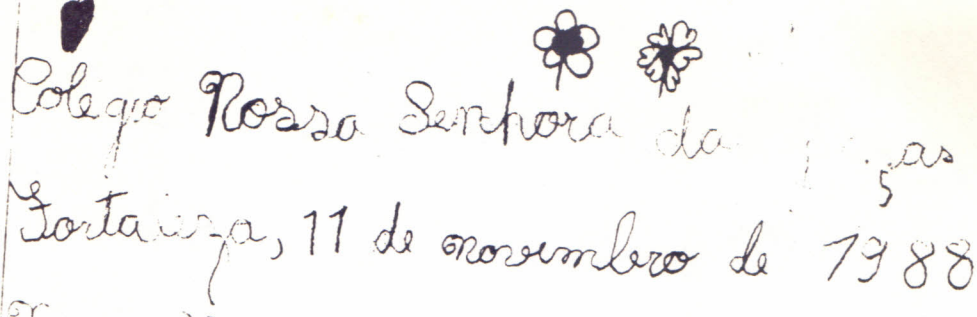 Colégio Nossa Senhora das
Fortaleza, 11 de novembro de 1988